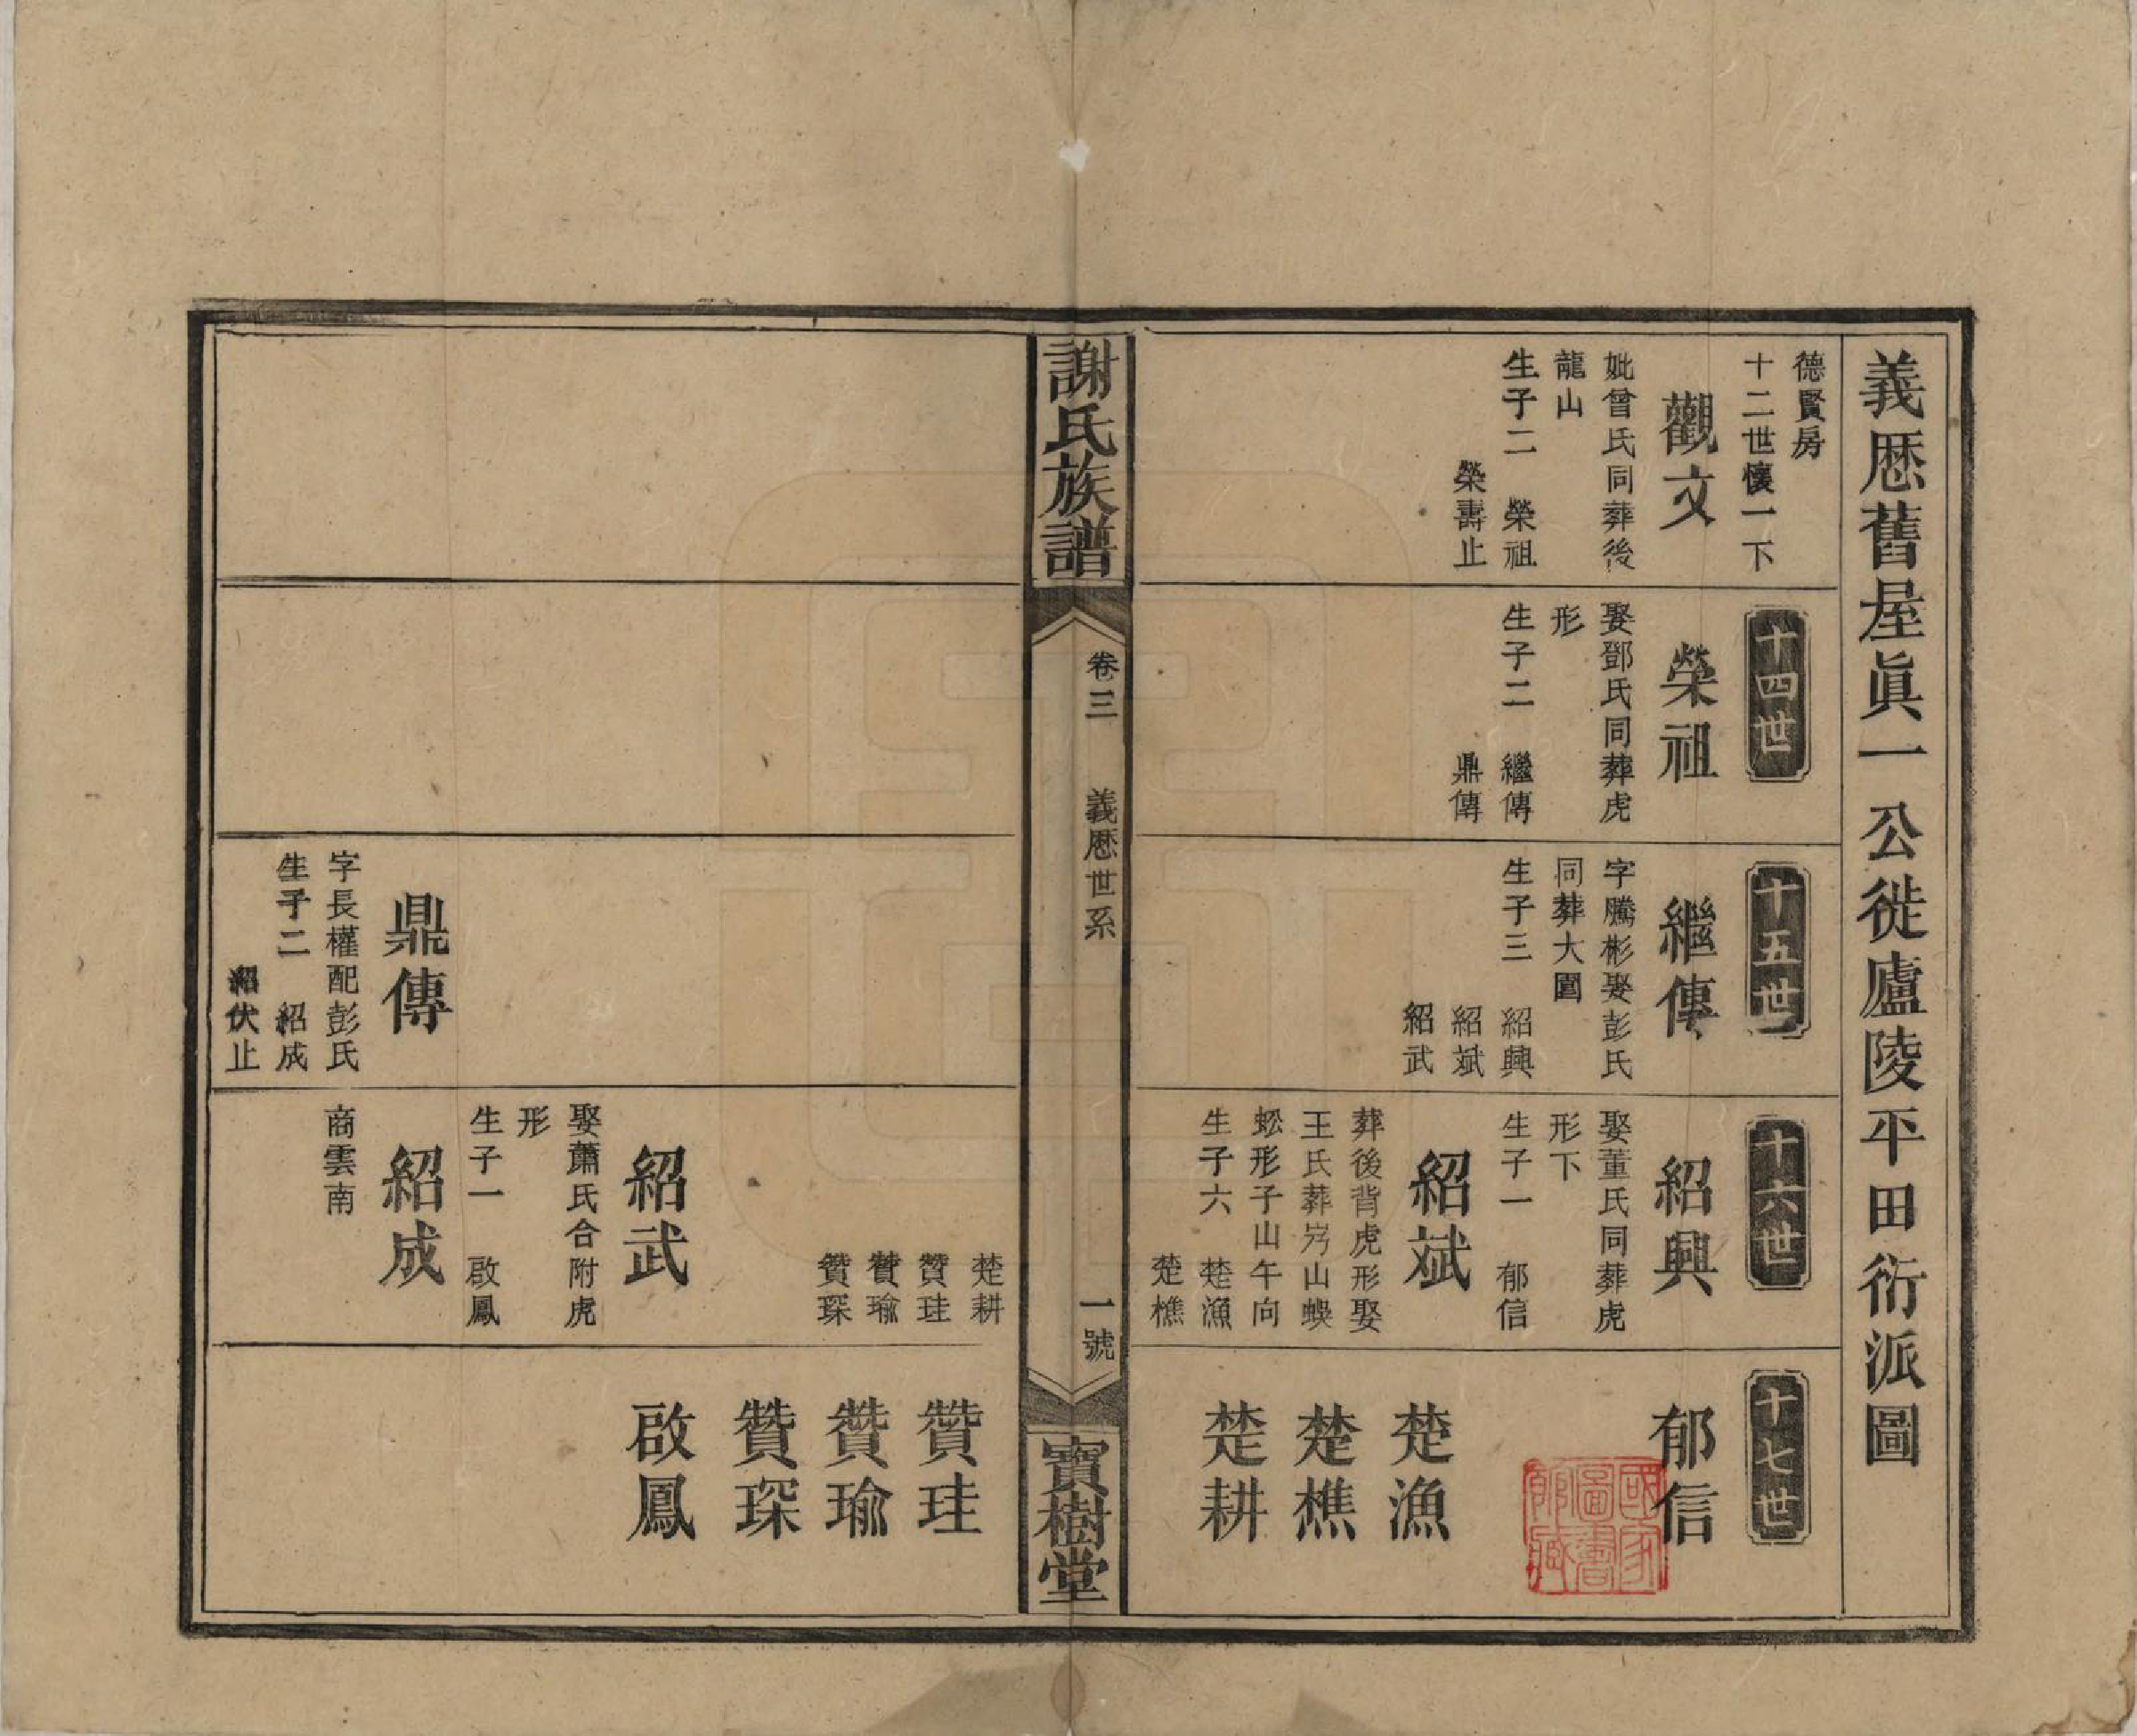 義厯舊屋眞一公徙廬陵平田衍派圖
德賢房
十二世懷一下
觀文
妣曾氏同葬後
龍山
生子二　榮祖
榮壽止
十四世
榮祖
娶鄧氏同葬虎
形
生子二　繼傳
鼎傳
十五世
繼傳
字騰彬娶彭氏
同葬大圍
生子三　紹興
紹斌
紹武
十六世
紹興
娶董氏同葬虎
形下
生子一　郁信
紹斌
葬後背虎形娶
王氏葬屴山蜈
蚣形子山午向
生子六　楚漁
楚樵
十七世
郁信
楚漁
楚樵
楚耕
國家圖書館藏
謝氏族譜
卷三　義厯世系
一號
寶樹堂
鼎傳
字長權配彭氏
生子二　紹成
紹伏止
楚耕
贊珪
贊瑜
贊琛
紹武
娶蕭氏合附虎
形
生子一　啟鳳
紹成
商雲南
贊珪
贊瑜
贊琛
啟鳳